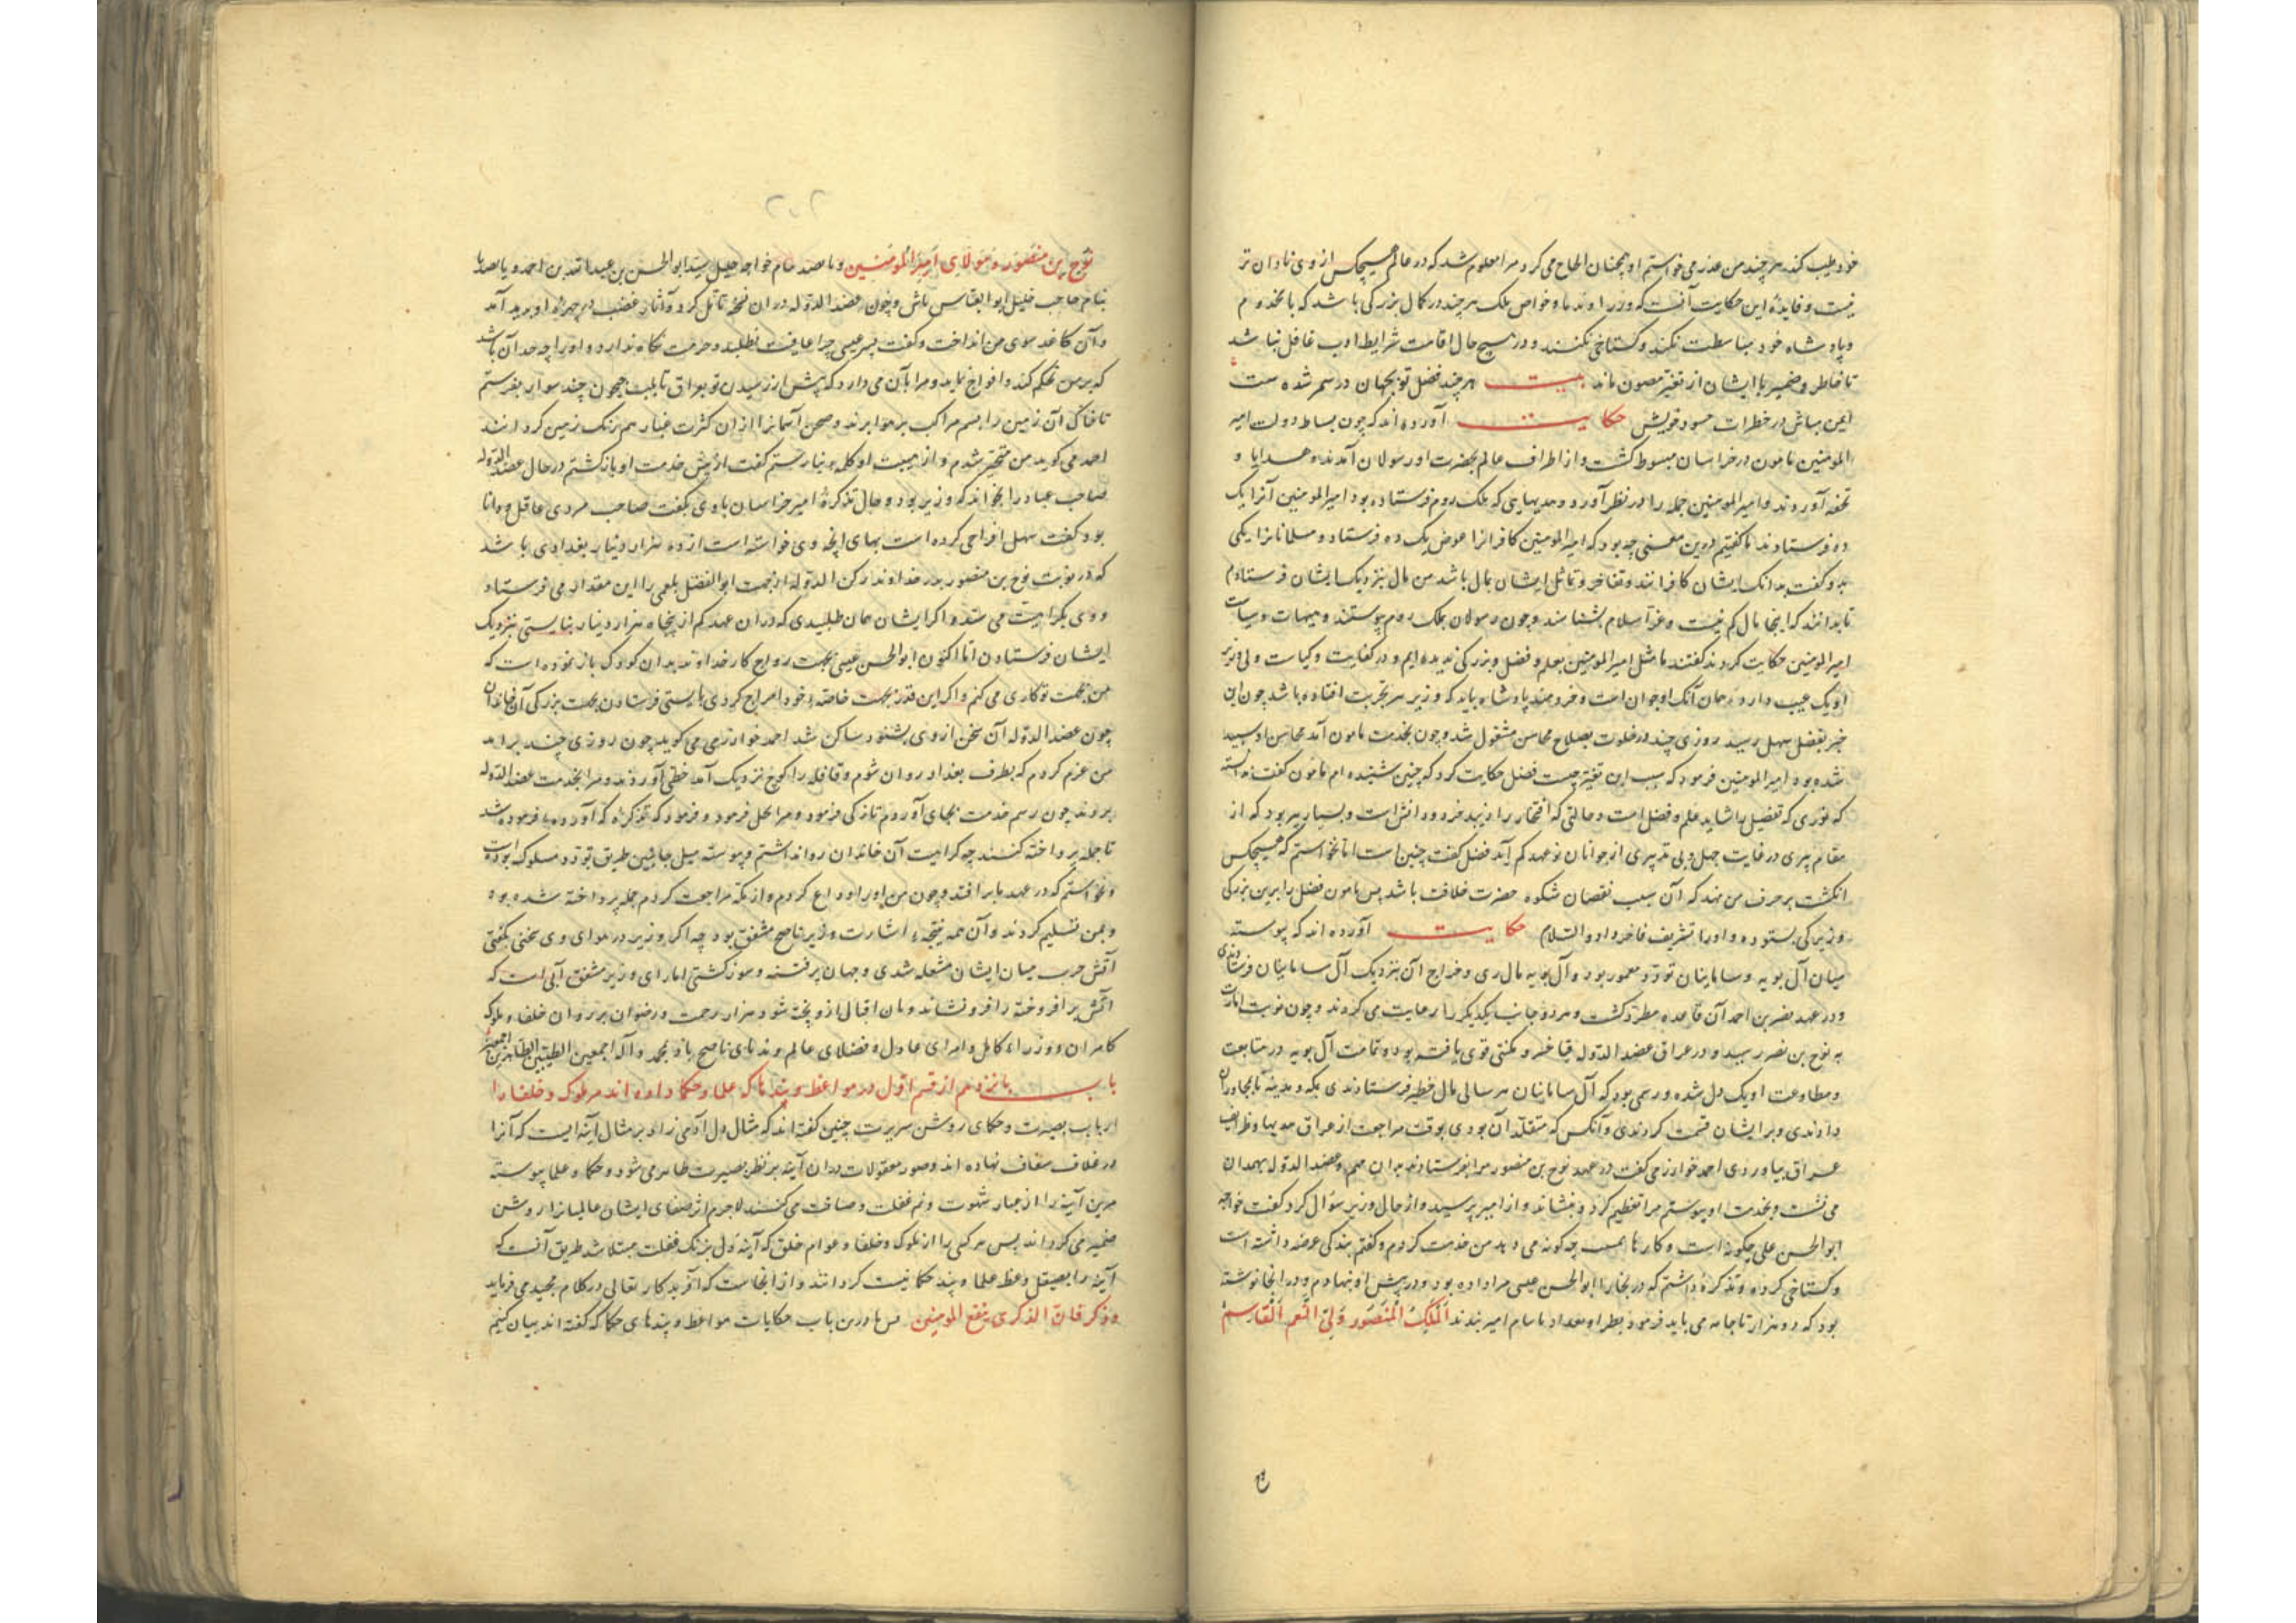 خود طیب کند هر چند من عذر می خواستم او همچنان الحاح می کرد مرا معلوم شد که در عالم هیچکس از وی نادان تر
نیست و فایدهٔ این حکایت آنست که وزرا و ندما و خواص ملک هر چند در کمال بزرکی باشد که با مخدوم
و پادشاه خود مباسطت نکند و کستاخی نکنند و در هیچ حال اقامت شرایط ادب غافل نباشد
تا خاطر و ضمیر با ایشان از تغیر مصون ماند بیت هر چند فضل تو بجهان در سمر شده ست
ایمن مباش در خطرات حسود خویش حکایت آورده اند که چون بساط دولت امیر
المومنین مامون در خراسان مبسوط کشت و از اطراف عالم بحضرت او رسولان آمدند و هدایا و
تحفه آوردند و امیر المومنین جمله را در نظر آورد و هدیهایی که ملک روم فرستاده بود امیر المومنین آنرا یک
ده فرستادند ما کفتیم درین معنی چه بود که امیر المومنین کافرانرا عوض یک ده فرستاد و مسلمانانرا یکی
بدو کفت بدانک ایشان کافرانند و تفاخر و تماثل ایشان بمال باشد من مال بنزدیک ایشان فرستادم
تا بدانند که اینجا مال کم نیست و عز اسلام بشناسند و چون رسولان بملک روم پیوستند و هیبات و سیاست
امیر المومنین حکایت کردند کفتند ما مثل امیر المومنین بعلم و فضل و بزرکی ندیده ایم و در کفایت و کیاست ولی وزیر
او یک عیب دارد و همان آنک او جوان است و خردمند پادشاه باید که وزیر سر تجربت افتاده باشد چون این
خبر بفضل سهل رسید روزی چند در خلوت بصلاح محاسن مشغول شد و چون بخدمت مامون آمد محاسن او سپید
شده بود امیر المومنین فرمود که سبب این تغیر چیست فضل حکایت کرد که چنین شنیده ام مامون کفت ندانسته
که نوری که تفضیل را شاید علم و فضل است و حالتی که افتخار را زیبد خرد و دانش است و بسیار پیر بود که از
مقام پیری در غایت جهل و بی تدبیری از جوانان نو عهد کم آید فضل کفت چنین است اما نخواستم که هیچکس
انکشت بر حرف من نهد که آن سبب نقصان شکوه حضرت خلافت باشد پس مامون فضل را برین بزرکی
و زیرکی بستود و او را تشریف فاخر داد والسلام حکایت آورده اند که پیوسته
میان آل بویه و سامانیان تودد معمور بود و آل بویه مال ری و خراج آن بنزدیک آل سامانیان فرستادندی
و در عهد نصر بن احمد آن قاعده مطرد کشت و هر دو جانب یکدیکر را رعایت می کردند و چون نوبت امارت
به نوح بن نصر رسید و در عراق عضد الدوله فنا خسرو مکنتی قوی یافته بود و تمامت آل بویه در متابعت
و مطاوعت او یک دل شده و رسمی بود که آل سامانیان هر سالی مال خطیر فرستادندی بمکه و مدینه تا بمجاوران
دادندی و بر ایشان قسمت کردندی و آنکس که متقلد آن بودی بوقت مراجعت از عراق هدیها و ظرایف
عراق بیاوردی احمد خوارزمی کفت در عهد نوح بن منصور مرا بفرستادند بدان مهم و عضد الدوله بهمدان
می نشست و بخدمت او پیوستم مرا تعظیم کرد و بنشاند و از امیر پرسید و از حال وزیر سؤال کرد کفت خواجه
ابوالحسن علی چکونه است و کارها چکونه می دهد من خدمت کردم و کفتم بندکی عرضه داشته است
و کستاخی کرده و تذکرهٔ داشتم که در بخارا ابو الحسن عیسی مرا داده بود و در پیش او نهادم و در آنجا نوشته
بود که دو هزار تا جامه می باید فرمود بطراز بغداد با نام امیر بندند الملک المنصور ولی النعم القاسم
نوح بن منصور مولای امیر المومنین و پانصد بنام خواجه جلیل سید ابو الحسن بن عبیدالله بن احمد و پانصد تا
بنام حاجب خلیل ابو العباس تاش و چون عضد الدوله دران نسخه تامل کرد و آثار غضب در چهرهٔ او پدید آمد
و آن کاغد سوی من انداخت و کفت پسر عیسی چرا عافیت نطلبد و حرمت نکاه ندارد و او را چه حد آن باشد
که بر من تحکم کند و افواج نماید و مرا بآن می دارد که پیش از رسیدن تو بعراق تا بلب جیحون چند سوار بفرستم
تا خاک آن زمین را بسم مراکب بر هوا برند و صحن آسمانرا از ان کثرت غبار هم رنک زمین کردانند
احمد می کوید من متحیر شدم و از هیبت او کله و نیارستم کفت از پیش خدمت او بازکشتم در حال عضد الدوله
صاحب عباد را بخواند که وزیر بود و حال تذکرهٔ امیر خراسان با وی بکفت صاحب مردی عاقل و دانا
بود کفت سهل افراحی کرده است بهای آنچه وی خواسته است از ده هزار دینار بغدادی باشد
که در نوبت نوح بن منصور پدر خداوند رکن الدوله از جهت ابو الفضل بلعمی را این مقدار می فرستاد
و وی بکرامیت می ستد و اکر ایشان همان طلبیدی که دران عهد کم از پنجاه هزار دینار نبایستی بنزدیک
ایشان فرستادن اما اکنون ابو الحسن عیسی بجهت رواج کار خداوند بدان کودک باز نموده است که
من بجهت تو کاری می کنم و اکر این قدر بجهت خاصهٔ خود امراج کردی بایستی فرستادن بجهت بزرکی آن خاندان
چون عضد الدوله آن سخن از وی بشنود ساکن شد احمد خوارزمی می کوید چون روزی چند برآمد
من عزم کردم که بطرف بغداد روان شوم و قافله را کوچ نزدیک آمد خطی آوردند و مرا بخدمت عضد الدوله
بردند چون رسم خدمت بجای آوردم تازکی فرمود و مرا بحل فرمود و فرمود که تذکرهٔ که آورده فرموده شد
تا جمله پرداخته کنند چه کرامیت آن خاندان روا نداشتم و پیوسته میل جانبین طریق تودد مسلوک بوده است
و نخواستم که در عهد ما بر افتد و چون من او را وداع کردم و از مکه مراجعت کردم جمله پرداخته شده بود
و بمن تسلیم کردند و آن همه نتیجهٔ اشارت وزیر ناصح مشفق بود چه اکر وزیر در هوای وی سخنی بکفتی
آتش حرب میان ایشان مشعله شدی و جهان پر فتنه و سوز کشتی اما رای وزیر مشفق آبی است که
آتش بر افروخته را فرو نشاند و نان اقبال ازو پخته شود هزار رحمت و رضوان بر روان خلفا و ملوک
کامران و وزراء کامل و امرای عادل و فضلای عالم و ندمای ناصح باد بمحمد و آله اجمعین الطیبین الطاهرین اجمعین
باب پانزدهم از قسم اول در مواعظ و پندها که علما و حکما داده اند مر ملوک و خلفا را
ارباب بصیرت و حکمای روشن سریرت چنین کفته اند که مثال دل آدمی زاد بر مثال آینه ایست که آنرا
در غلاف شغاف نهاده اند و صور معقولات دران آینه بر نظر بصیرت ظاهر می شود و حکما و علما پیوسته
مرین آینه را از غبار شهوت و نم غفلت و صافت می کنند لاجرم اثر صفای ایشان عالمیانرا روشن
ضمیر می کرداند پس هر کسی را از ملوک و خلفا و عوام خلق که آینه دل بزنک غفلت مبتلا شد طریق آنست که
آینه را بصیقل وعظ علما و پند حکما نیست کردانند و از انجاست که آفریدکار تعالی در کلام مجید می فرماید
وذکر فان الذکری تنفع المومنین پس ما درین باب حکایات مواعظ و پندهای حکما که کفته اند بیان کنیم